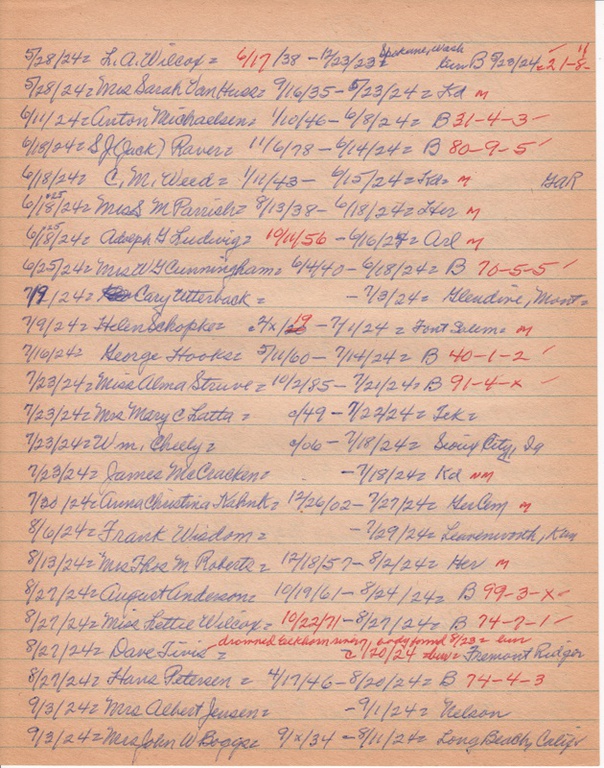 5/28/24= L.A. Wilcox = 6/17/38 - 12/23/23= Spokane, Wash bur B 5/23/24 = 21-8-11
5/28/24= Mrs Sarah Van Huss= 9/16/35 - 5/23/24= Kd M
6/11/24= Anton Michaelsen= 1/10/46 - 6/8/24= B 31-4-3 ✓
6/18/24= S J (Jack) Raver= 11/6/78 - 6/14/24= B 80-9-5 ✓
6/18/24= C. M. Weed= 1/11/43 - 6/15/24= Kd= M GAR
6/18/24= Miss M Parrish= 8/13/38 - 6/18/24= Her M
6/18/24= Adolph G Ludwig= 10/11/56 - 6/16/24= Arl M
6/25/24= Mrs W G Cunningham= 6/4/40 - 6/18/24= B 70-5-5 ✓
7/9/24= Cary Utterback= - 7/3/24= Glendive, Mont=
7/9/24= Helen Schopke= 2/x/19 - 7/1/24= Font M
7/16/24= George Hooks= 5/11/60 - 7/14/24= B 40-1-2 ✓
7/23/24= Miss Alma Struve= 10/2/85 - 7/21/24= B 91-4-x ✓
7/23/24= Mrs Mary C Latta= c/49 - 7/22/24= Tek=
7/23/24= Wm. Cheely= c/06 - 7/18/24= Sioux City, Ia
7/23/24= James McCracken= - 7/18/24= Kd NM
7/30/24= Anna Christina Kahnk= 12/26/02 - 7/27/24= Ger Cem M
8/6/24= Frank Wisdom= - 7/29/24= Leavenworth, Kan
8/13/24= Mrs Thos M Roberts= 12/18/57 - 8/2/24= Her M
8/27/24= August Anderson= 10/19/61 - 8/24/24= B 99-3-x ✓
8/27/24= Miss Lettie Wilcox= 10/22/71 - 8/27/24= B 74-7-1 ✓
drowned Elkhorn river, body found 8/23= bur
8/27/24= Dave Tivis= c 7/20/24 = Fremont Ridge
8/27/24= Hans Petersen= 4/17/46 - 8/20/24= B 74-4-3
9/3/24= Mrs Albert Jensen= - 9/1/24= Nelson
9/3/24= Mrs John W Boggs= 9/x/34 - 8/11/24= Long Beach, Calif